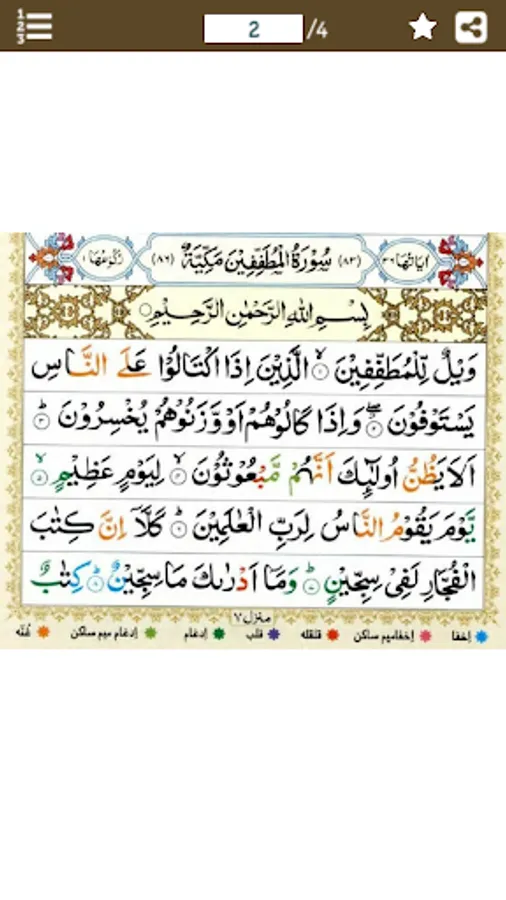 2 /4
اٰيَاتُهَا ٣٦ (٨٣) سُوْرَةُ الْمُطَفِّفِيْنَ مَكِّيَّةٌ (٨٦) رُكُوْعُهَا ١
بِسْمِ اللّٰهِ الرَّحْمٰنِ الرَّحِيْمِ
وَيْلٌ لِّلْمُطَفِّفِيْنَ ۙ۱ الَّذِيْنَ اِذَا اكْتَالُوْا عَلَى النَّاسِ
يَسْتَوْفُوْنَ ۖ۲ وَاِذَا كَالُوْهُمْ اَوْ وَّزَنُوْهُمْ يُخْسِرُوْنَ ؕ۳
اَلَا يَظُنُّ اُولٰٓئِكَ اَنَّهُمْ مَّبْعُوْثُوْنَ ۙ۴ لِيَوْمٍ عَظِيْمٍ ۙ۵
يَّوْمَ يَقُوْمُ النَّاسُ لِرَبِّ الْعٰلَمِيْنَ ؕ۶ كَلَّاۤ اِنَّ كِتٰبَ
الْفُجَّارِ لَفِيْ سِجِّيْنٍ ؕ۷ وَمَاۤ اَدْرٰىكَ مَا سِجِّيْنٌ ؕ۸ كِتٰبٌ
منزل ٧
إخفا إخفامیم ساکن قلقله قلب إدغام إدغام میم ساکن غُنّه